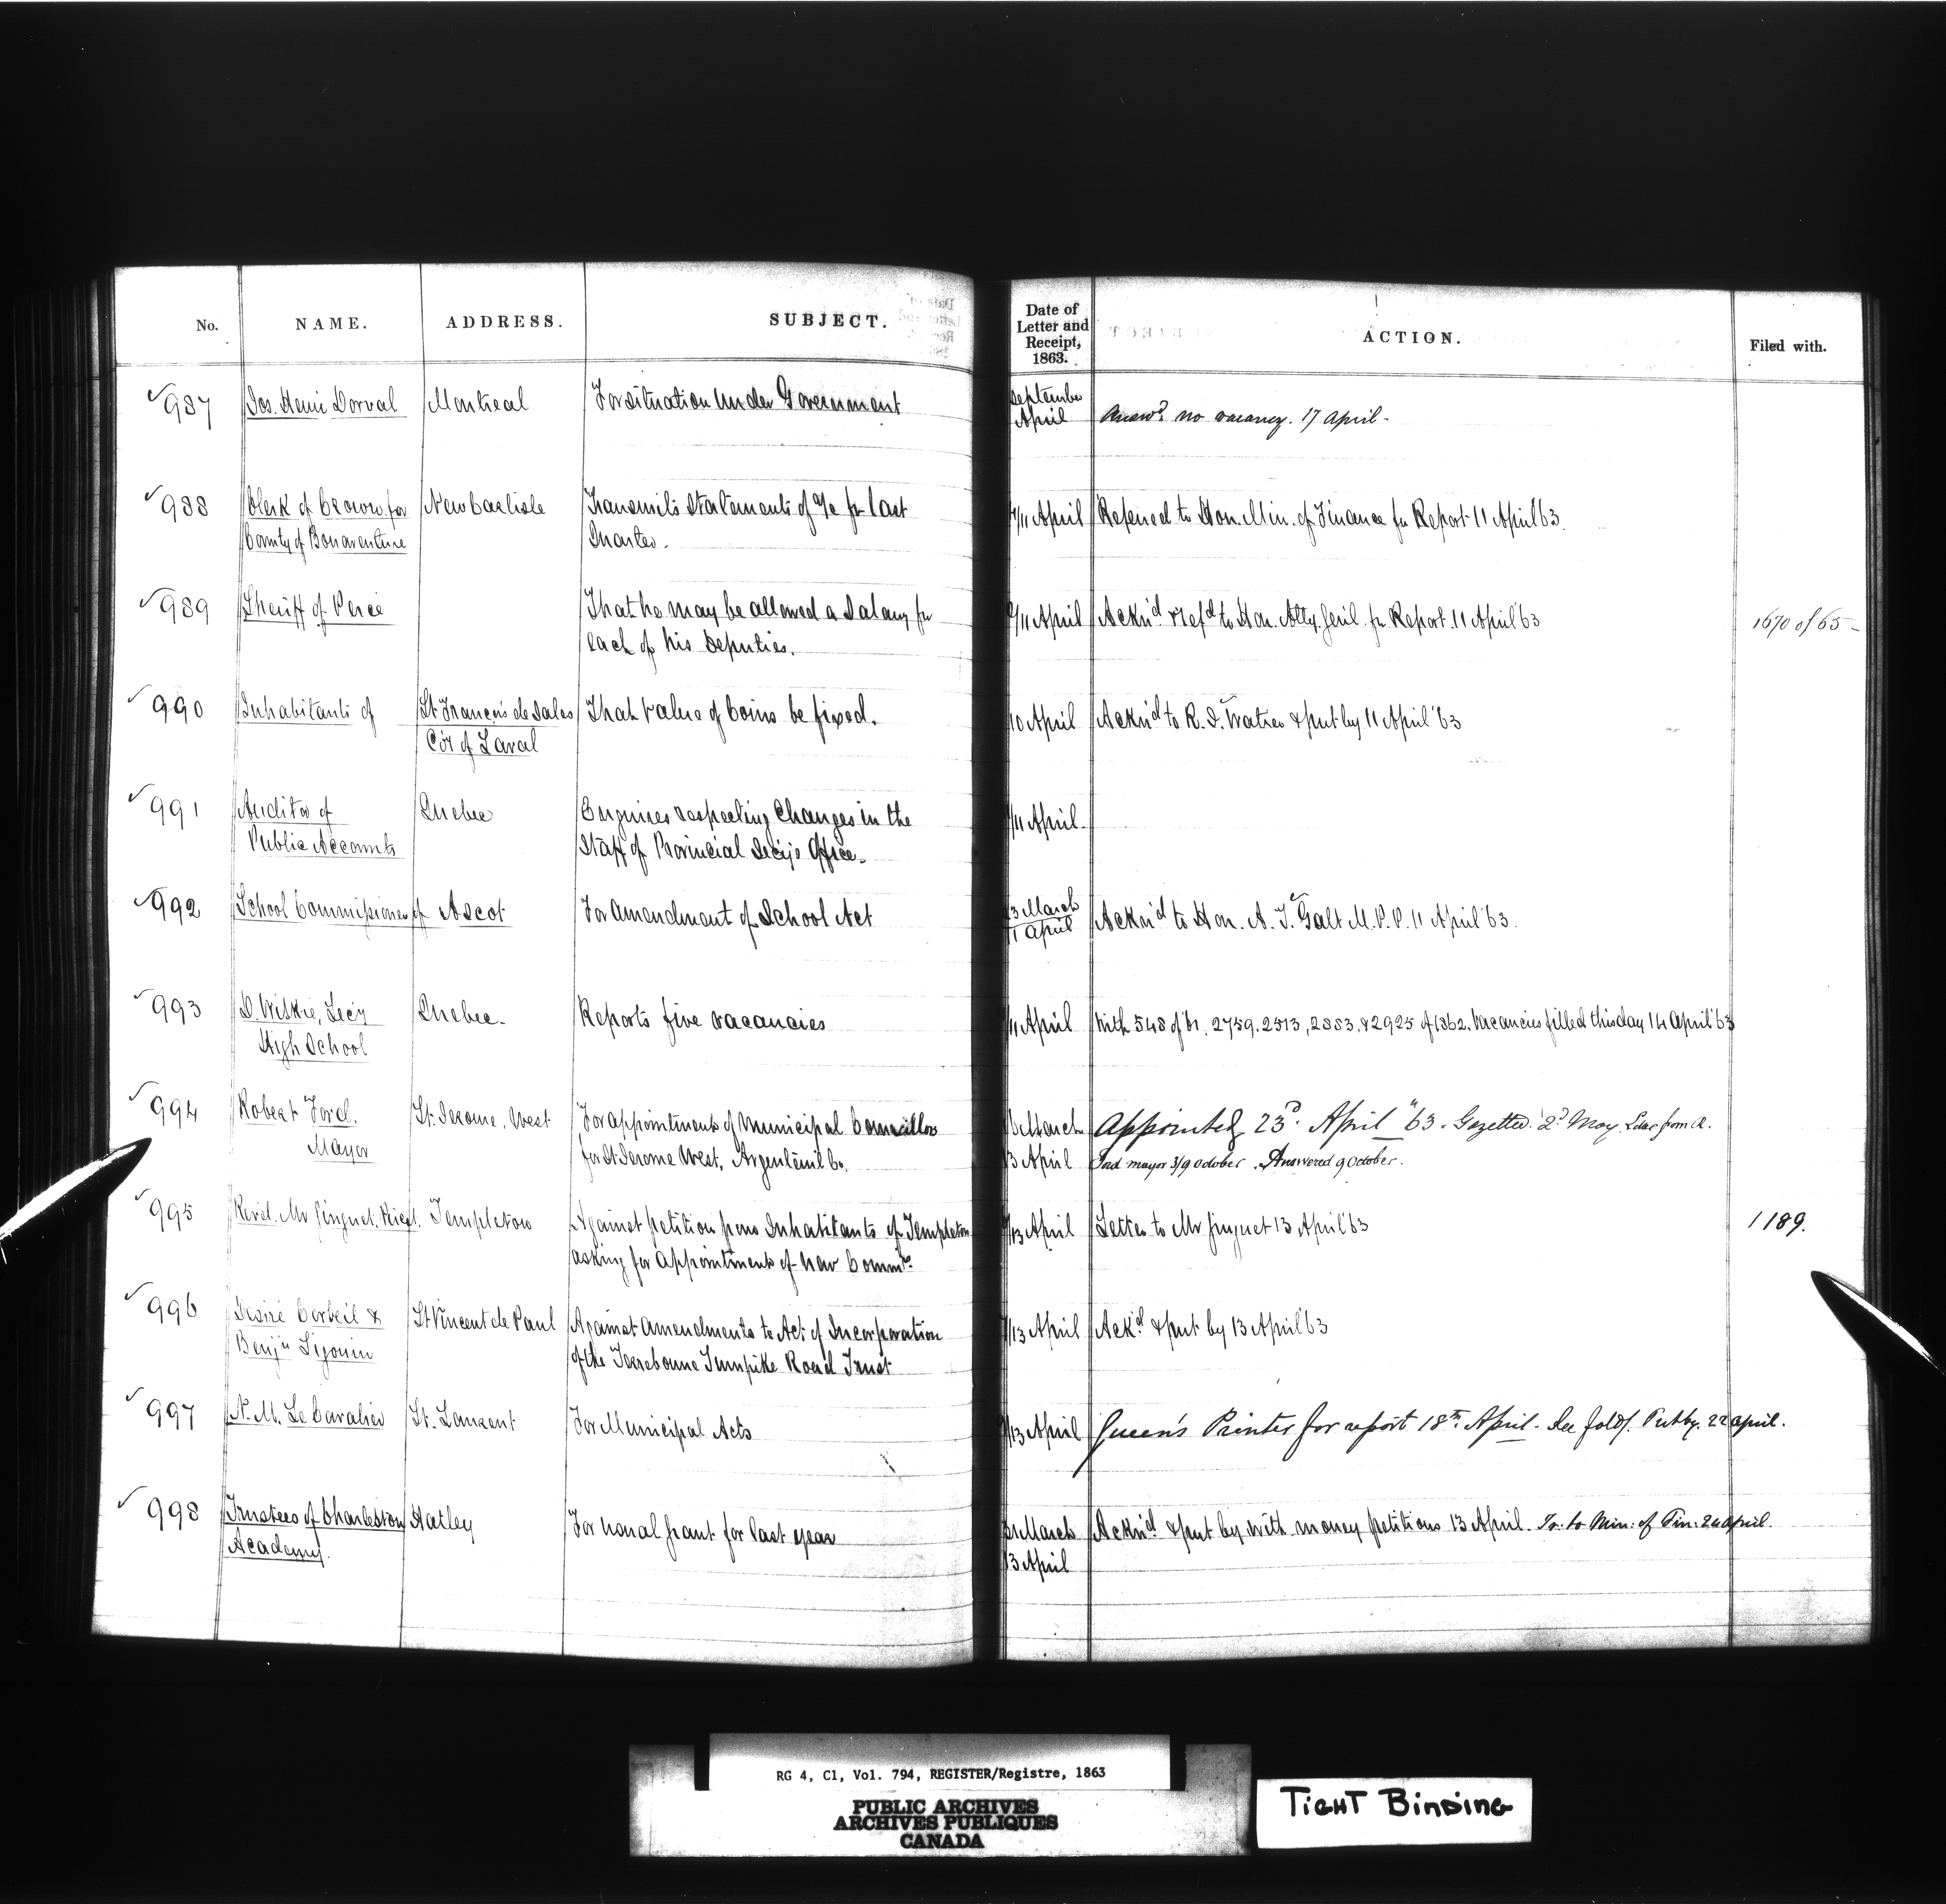 No. NAME. ADDRESS. SUBJECT. Date of Letter and Receipt, 1863. ACTION. Filed with.
987 Jos. Henri Dorval Montreal For situation under Government September April Answd. no vacancy. 17 April.
988 Clerk of Crown for New Carlisle Transmits Statements of a/c for last 11 April Referred to Hon. Min. of Finance for Report 11 April '63.
County of Bonaventure Quarter.
989 Sheriff of Percé That he may be allowed a Salary for 11 April Ackn'd & refd to Hon. Atty. Genl. for Report. 11 April '63 1670 of 65
each of his Deputies.
990 Inhabitants of St. François de Sales That Value of Coins be fixed. 10 April Ackn'd to R. & put by 11 April '63
Co'y of Laval
991 Auditor of Quebec Enquires respecting Changes in the 11 April
Public Accounts Staff of Provincial Secy's Office.
992 School Commissioners of Ascot For Amendment of School Act March Ackn'd to Hon. A. T. Galt M.P.P. 11 April '63.
April
993 D. Wilkie, Secy Quebec. Reports five vacancies 11 April With 548 of 61, 2759, 2513, 2883, & 2925 of 1862. Vacancies filled this day 14 April '63
High School
994 Robert Ford. St. Jerome, West For appointment of Municipal Councillor March Appointed 23d. April "63. Gazetted 2d May. Letter from R.
Mayor for St. Jerome West, Argenteuil Co. 13 April Ford mayor 3/9 October. Answered 9 October.
995 Revd. Mr Ginguet, Priest, Templeton Against petition from Inhabitants of Templeton 13 April Letter to Mr Ginguet 13 April '63 1189.
asking for appointments of New Commrs.
996 Desiré Corbeil & St Vincent de Paul Against Amendments to Act of Incorporation 13 April Ack.d & put by 13 April '63
Benjn Sigouin of the Terrebonne Turnpike Road Trust
997 N. M. Le Cavalier St. Laurent For Municipal Acts 13 April Queen's Printer for report 18th. April. See fold/. Put by. 22 April.
998 Trustees of Charleston Hatley For usual grant for last year 31 March Ackn'd & put by with money petitions 13 April. Tr. to Min: of Fin: 24 April.
Academy. 13 April
RG 4, C1, Vol. 794, REGISTER/Registre, 1863
PUBLIC ARCHIVES
ARCHIVES PUBLIQUES
CANADA
TIGHT BINDING